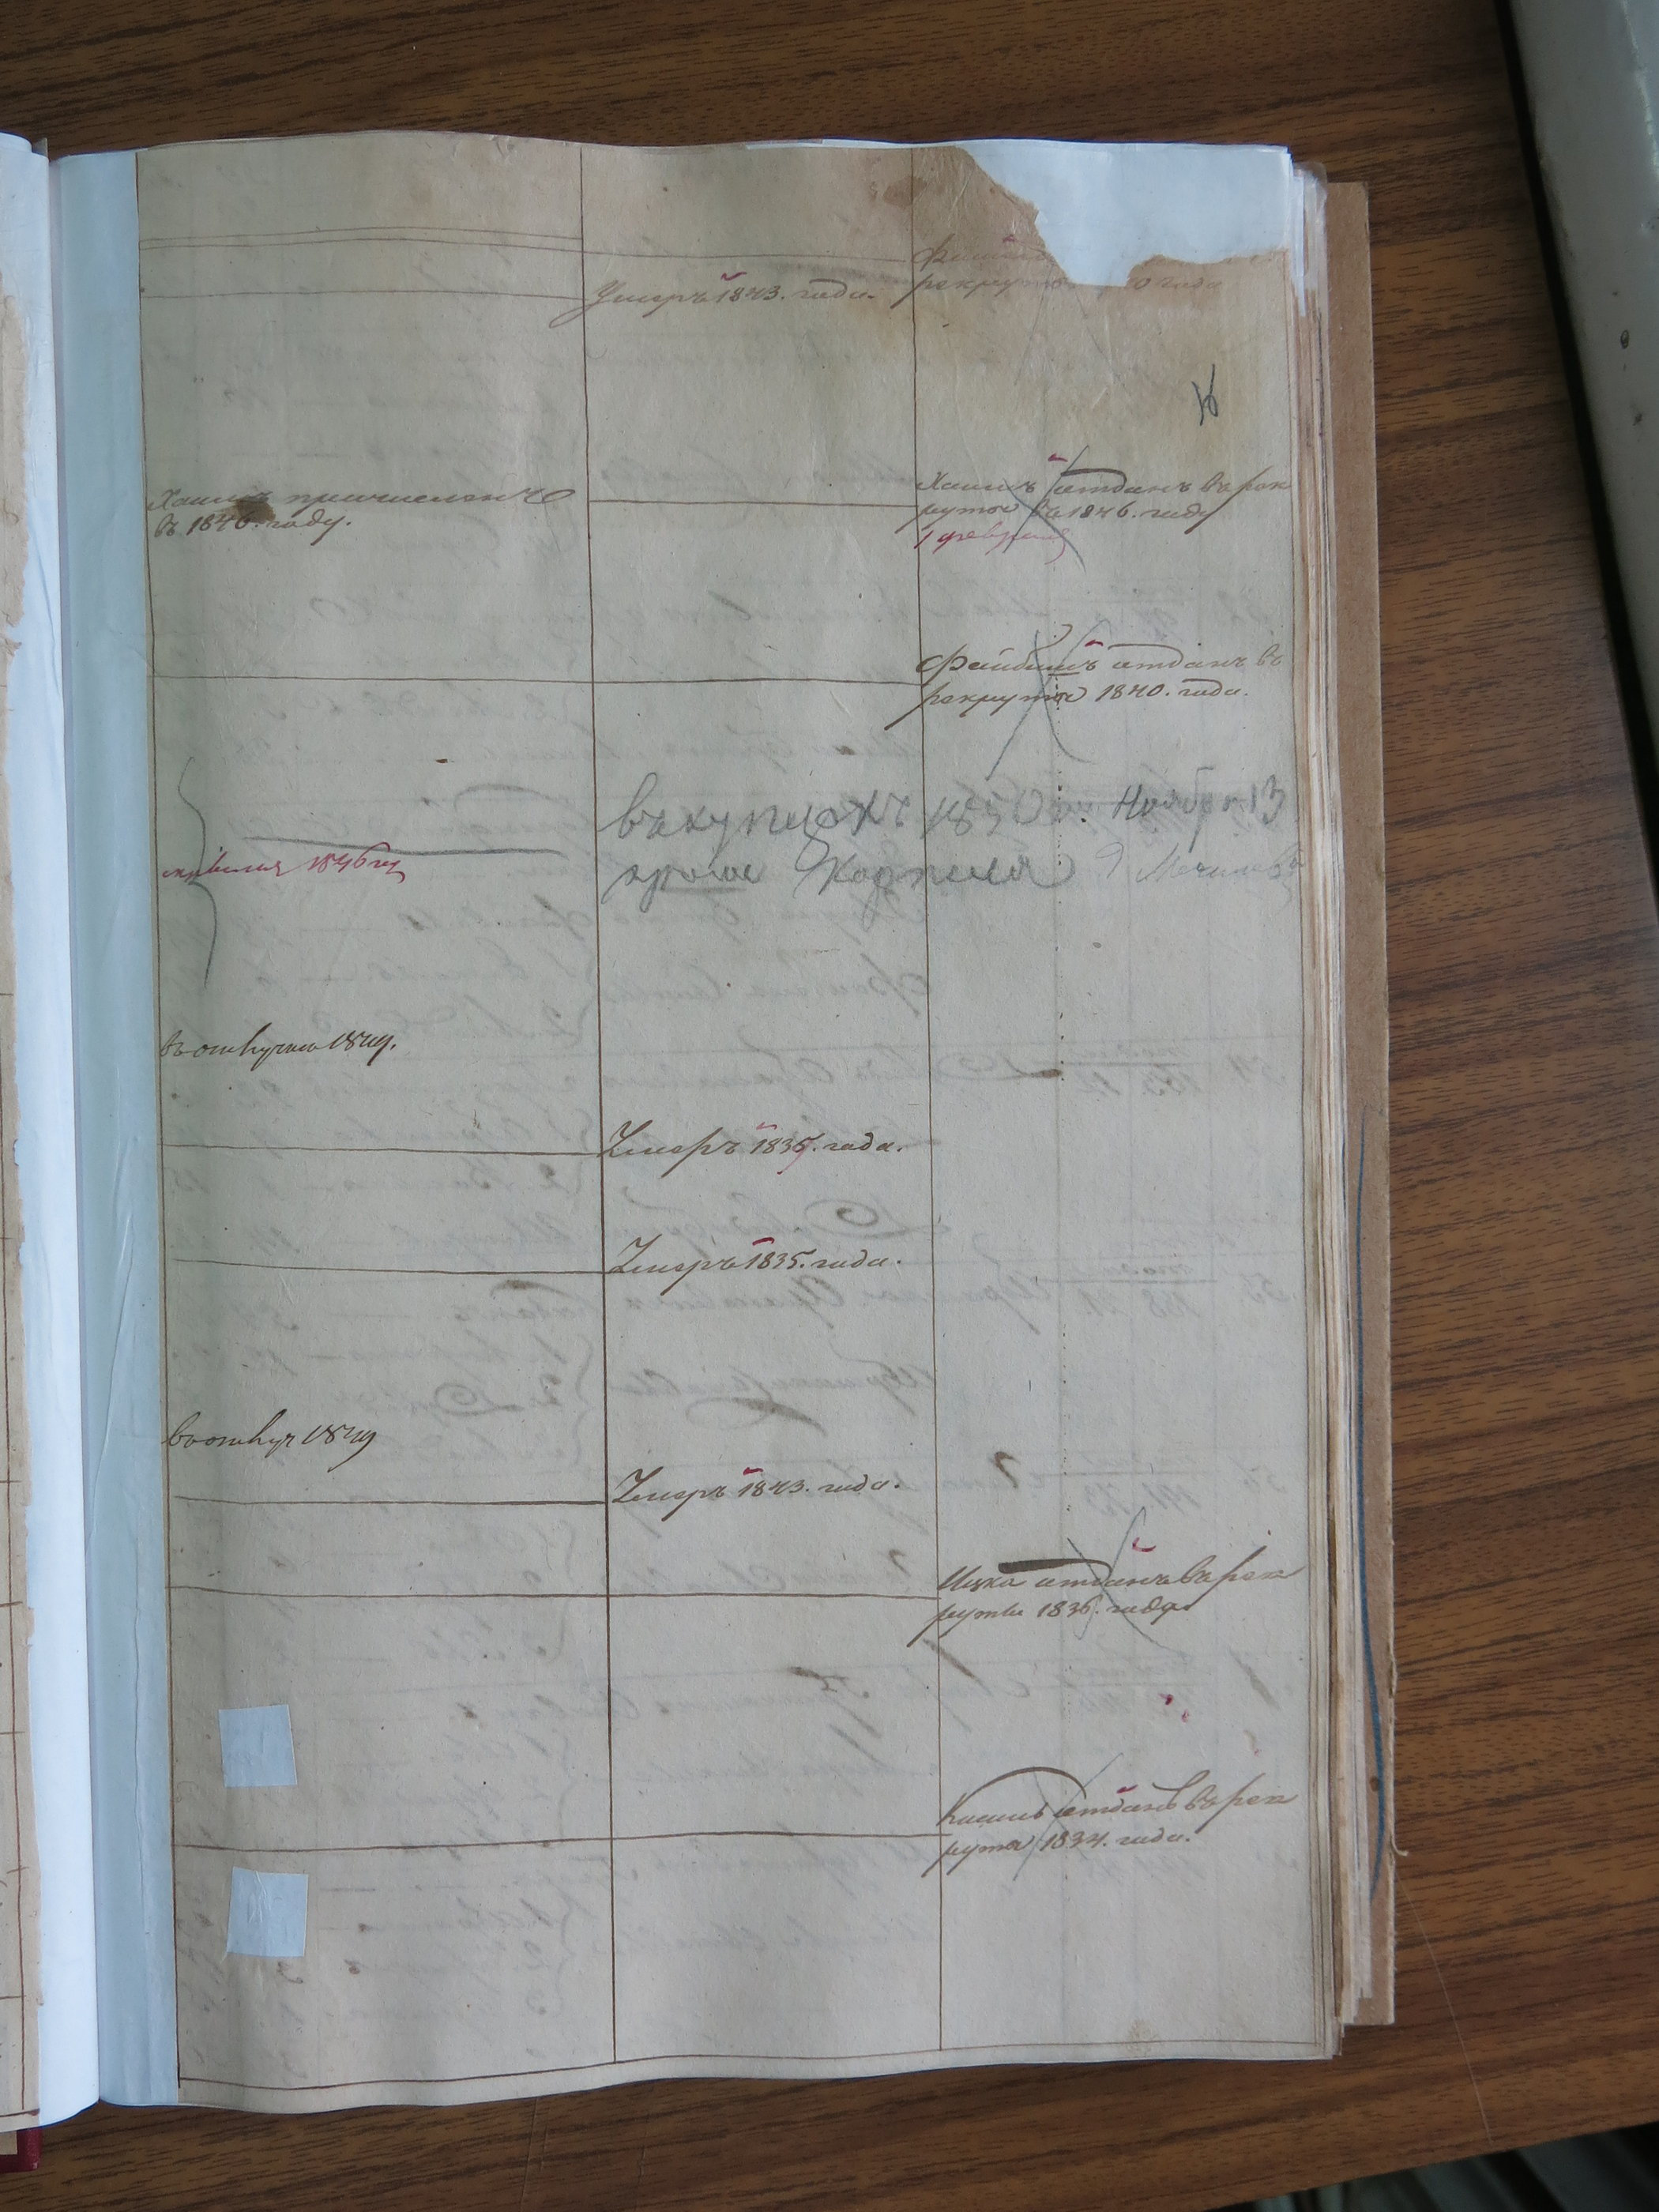 Умеръ 1843. года.
рекрут 0 года
Хаимъ причисленъ
въ 1846. году.
Хаимъ отданъ въ рек
руты въ 1846. году
1 февраля
Файбишъ отданъ въ
рекруты 1840. года.
въ купцахъ 1850 Ноября 13
кроме
1846
въ отлучке 1849.
Умеръ 1835. года.
Умеръ 1835. года.
в отлуч 1849
Умеръ 1843. года.
Ицка отданъ въ рек
руты 1836. года
отданъ въ рек
руты 1834. года.